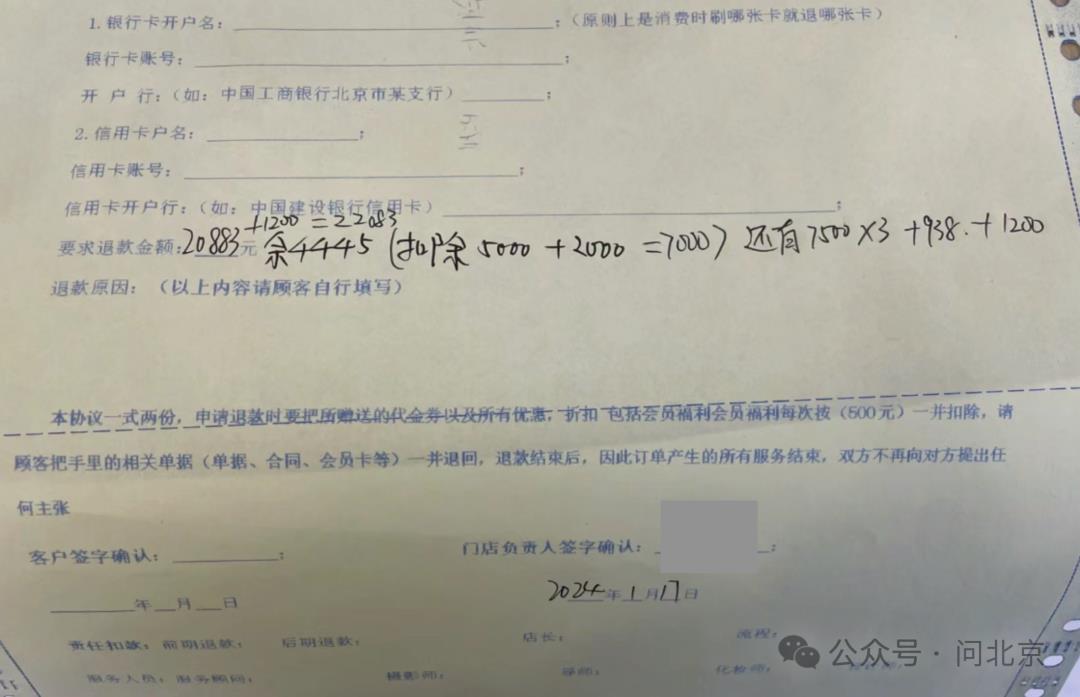 1.银行卡开户名：；（原则上是消费时刷哪张卡就退哪张卡）
银行卡账号：；
开 户 行：（如：中国工商银行北京市某支行）；
2.信用卡户名：；
信用卡账号：；
信用卡开户行：（如：中国建设银行信用卡）；
+1200=22083
要求退款金额：20883元 余4445（扣除5000+2000=7000）还有7500×3+938.+1200
退款原因：（以上内容请顾客自行填写）
本协议一式两份，申请退款时要把所赠送的代金券以及所有优惠，折扣 包括会员福利会员福利每次按（500元）一并扣除，请
顾客把手里的相关单据（单据、合同、会员卡等）一并退回，退款结束后，因此订单产生的所有服务结束，双方不再向对方提出任
何主张
客户签字确认：； 门店负责人签字确认：；
年 月 日 2024年1月17日
责任扣款：前期退款： 后期退款： 店长： 流程：
服务人员：服务顾问： 摄影师： 导师： 化妆师：
公众号·问北京